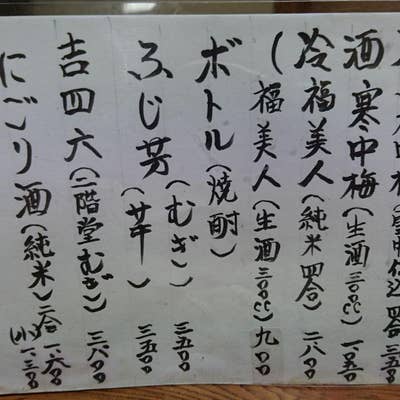 中梅(雪中仕込 四合 三五
酒 寒中梅(生酒三〇〇CC) 一〇五〇
冷 福美人(純米四合) 二八〇〇
( 福美人(生酒三〇〇CC) 九〇〇
ボトル(焼酎)
ふじ芳(むぎ) 三五〇〇
(芋) 三五〇〇
吉四六(二階堂むぎ) 三八〇〇
にごり酒(純米) 二合 一、六〇〇
(小) 一、三〇〇